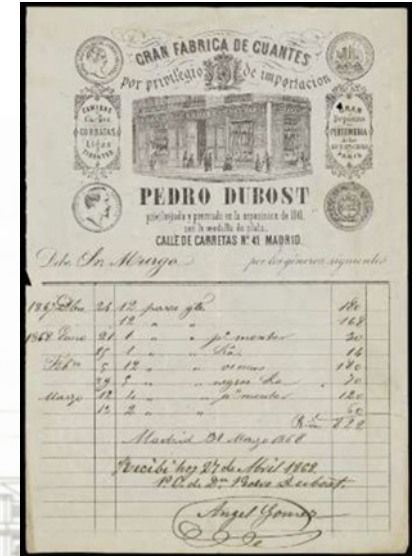 GRAN FABRICA DE GUANTES
por privilegio de importacion
CAMISAS
Cuellos
CORBATAS
Ligas
TIRANTES
GRAN
Deposito
de
PERFUMERIA
PARIS
PEDRO DUBOST
privilegiado y premiado en la esposicion de 1841
con la medalla de plata.
CALLE DE CARRETAS Nº 41 MADRID.
Debe Sr. Murga por los géneros siguientes
1867 24 12 pares 180
12 " " 168
1868 Enero 21 1 " " pª montar 30
25 1 " " 14
5 12 " " 180
29 5 " " negros 70
Marzo 12 4 " " pª montar 120
13 2 " " 60
822
Madrid 31 Marzo 1868
Recibi hoy 27 de Abril 1868.
P.O. de Dn. Pedro Dubost.
Angel Gomez